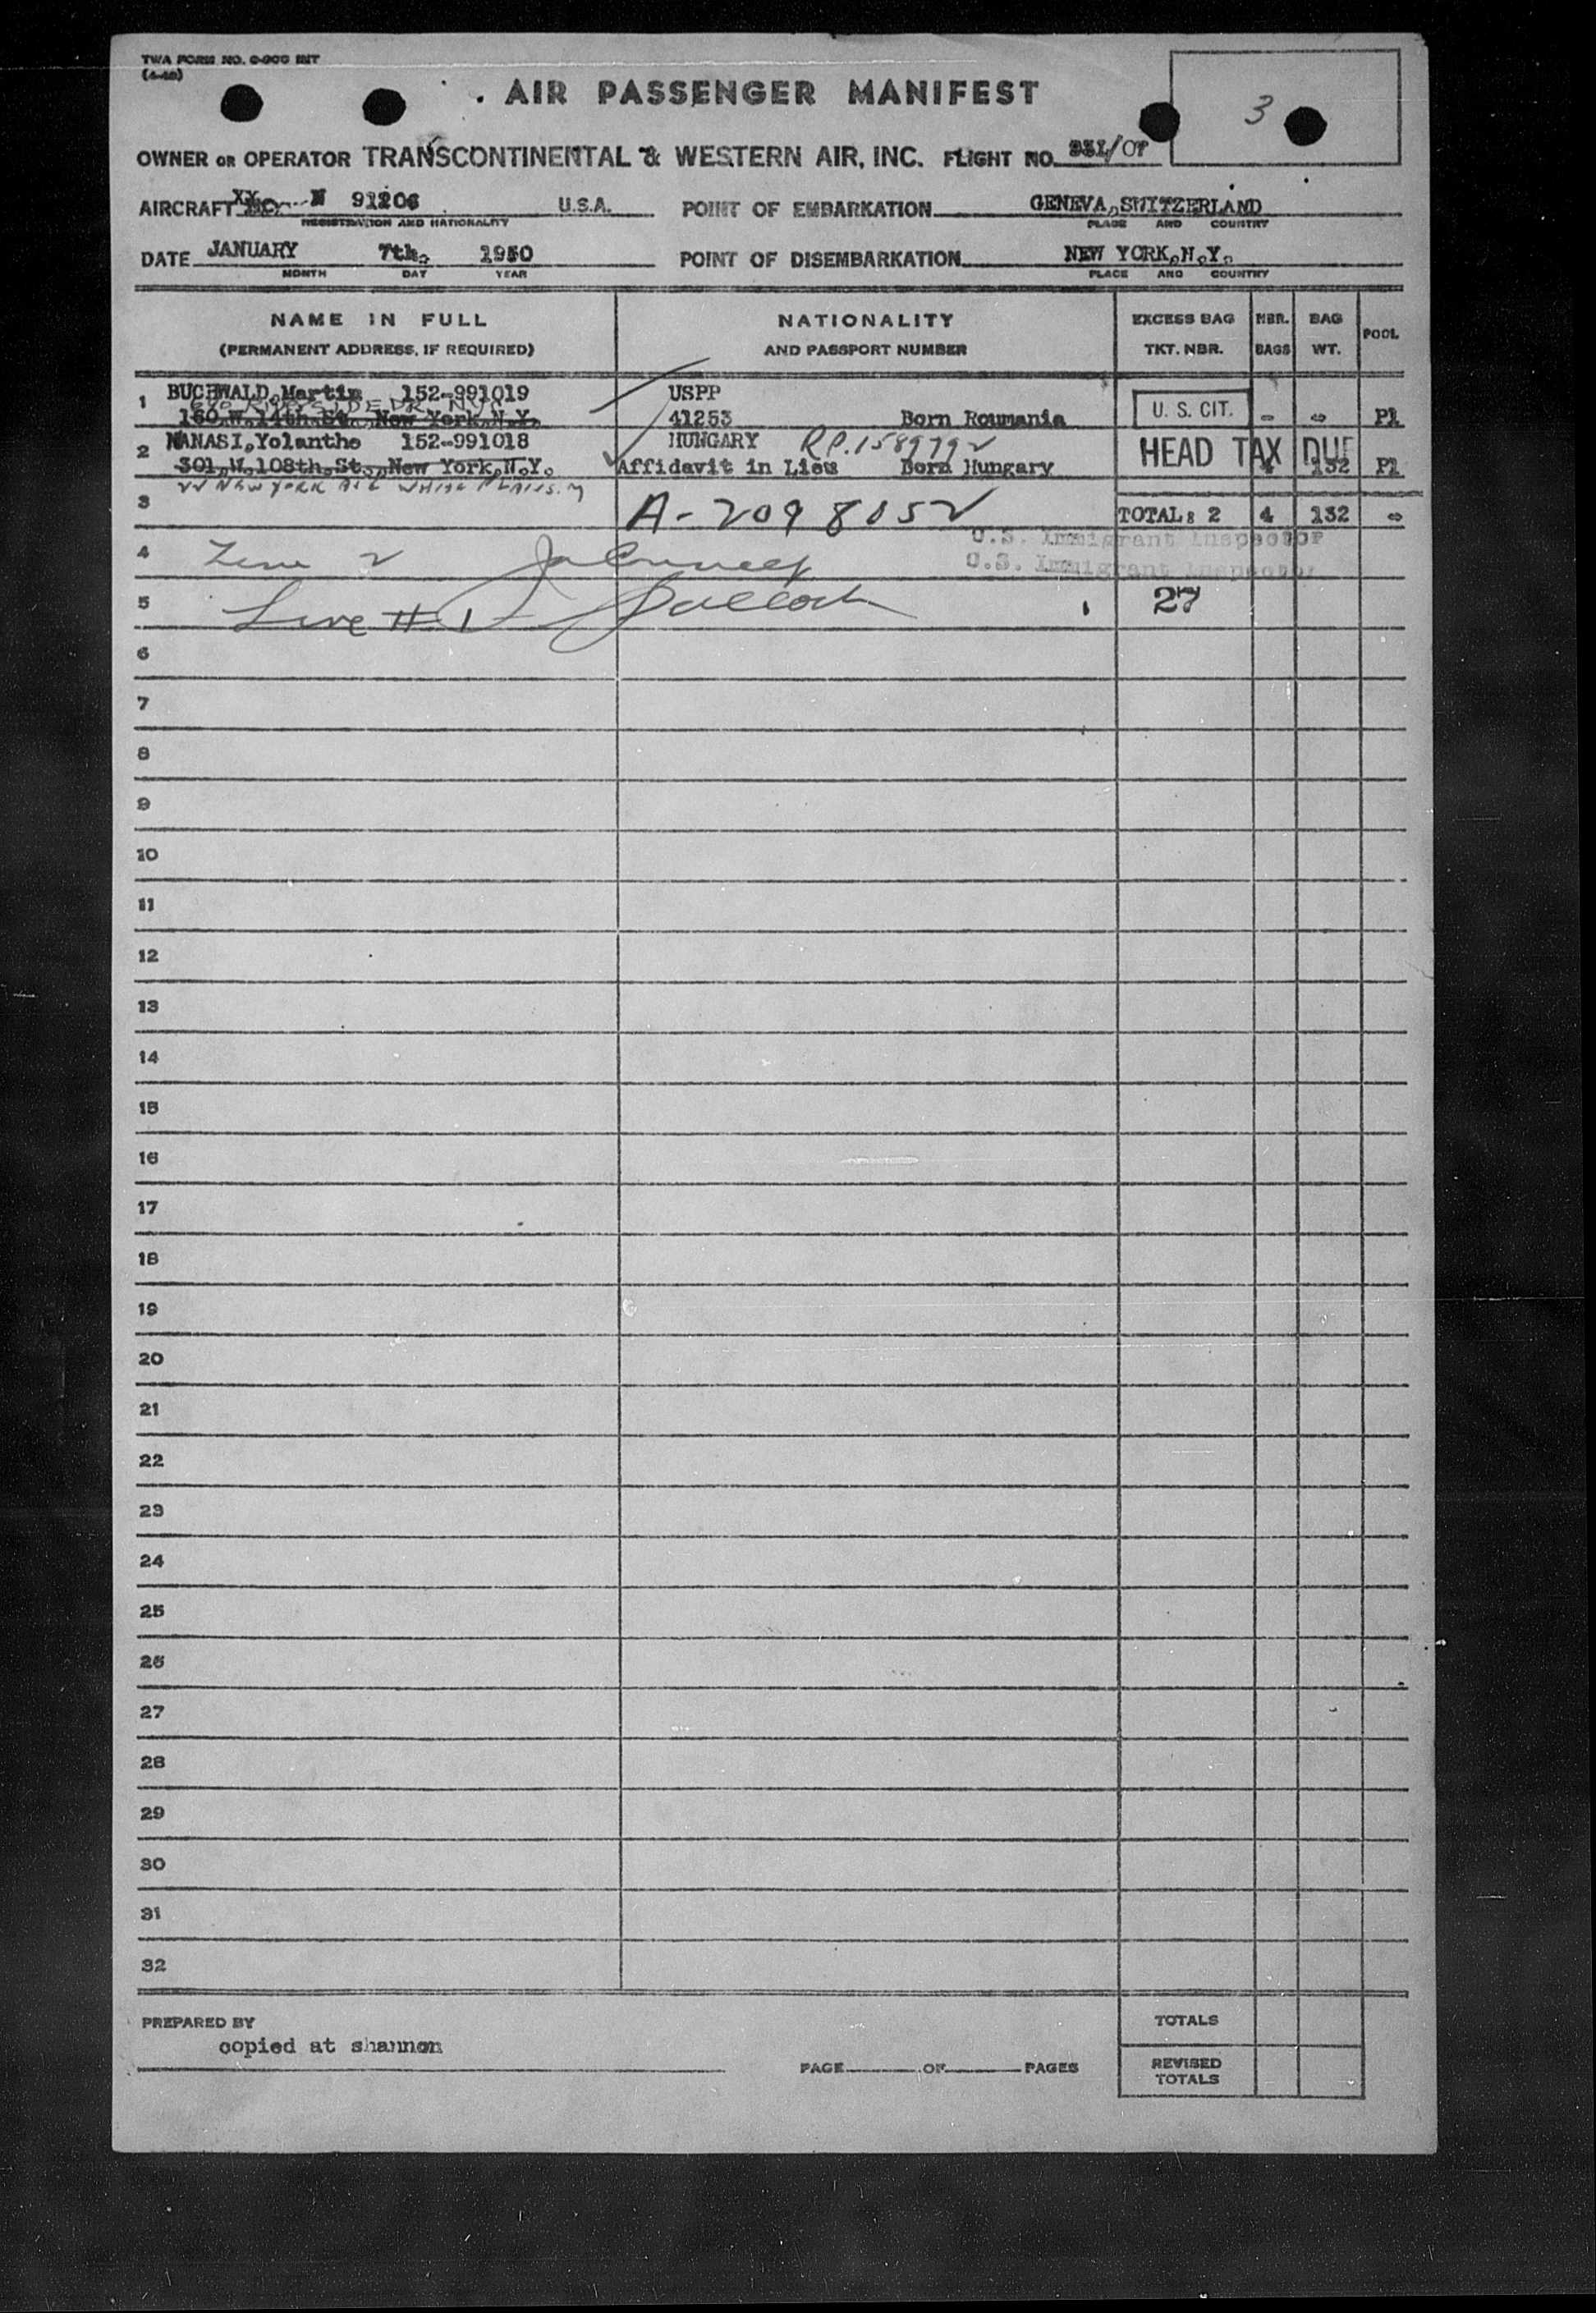 TWA FORM NO. INT
3
. AIR PASSENGER MANIFEST
OWNER OR OPERATOR TRANSCONTINENTAL & WESTERN AIR, INC. FLIGHT NO. 931/07
AIRCRAFT N 91206 U.S.A. POINT OF EMBARKATION GENEVA,SWITZERLAND
REGISTRATION AND NATIONALITY PLACE AND COUNTRY
DATE JANUARY 7th. 1950 POINT OF DISEMBARKATION NEW YORK.N.Y.
MONTH DAY YEAR PLACE AND COUNTRY
NAME IN FULL NATIONALITY EXCESS BAG NBR. BAG POOL
(PERMANENT ADDRESS, IF REQUIRED) AND PASSPORT NUMBER TKT. NBR. BAGS WT.
1 BUCHWALD,Martin 152-991019 USPP
RIVERSIDE DR. NYC
160.W.14th.St. New York.N.Y. 41253 Born Roumania U. S. CIT. - - Pl
2 MANASI,Yolanthe 152-991018 HUNGARY RP.1589792 HEAD TAX DUE
301.W.108th.St. New York.N.Y. Affidavit in Lieu Born Hungary 4 132 Pl
NEW YORK AVE WHITE PLAINS.
3 A-2098052 TOTAL: 2 4 132 -
U.S. Immigrant Inspector
4 Line 2
U.S. Immigrant Inspector
5 Line # 1 27
6
7
8
9
10
11
12
13
14
15
16
17
18
19
20
21
22
23
24
25
26
27
28
29
30
31
32
PREPARED BY TOTALS
copied at shannon
PAGE OF PAGES REVISED TOTALS